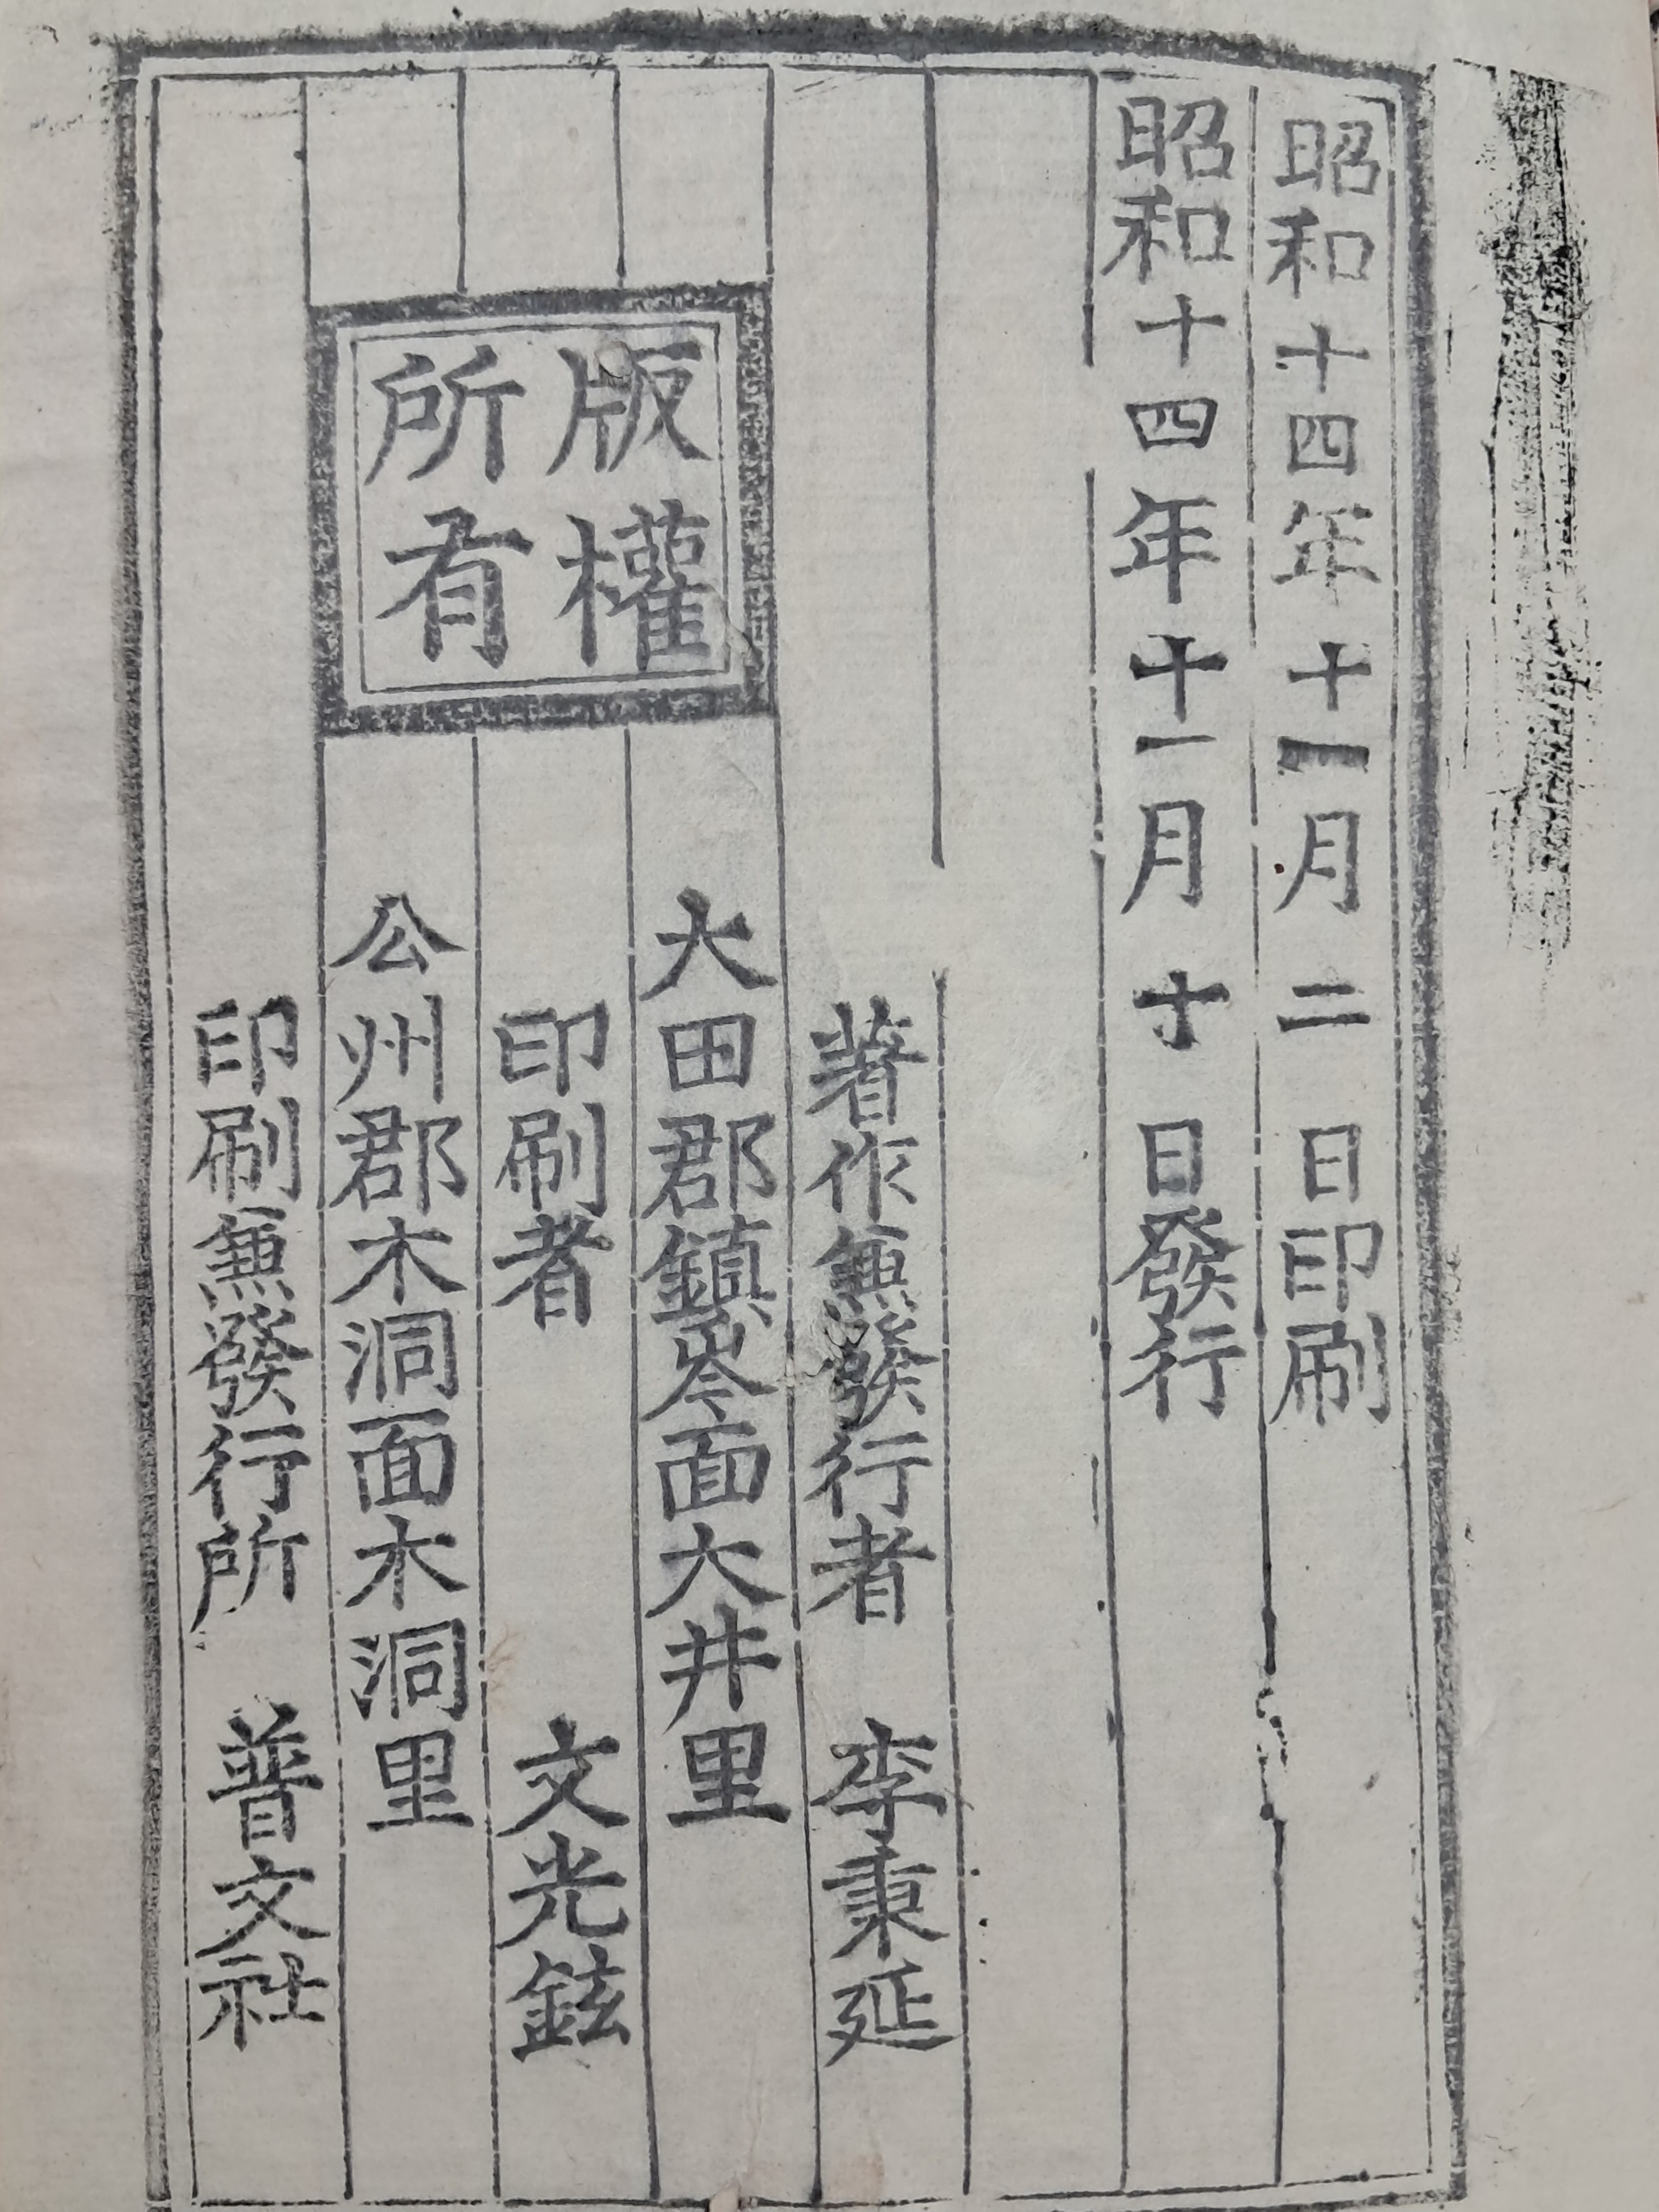 昭和十四年十一月二日印刷
昭和十四年十一月十日發行
著作兼發行者 李秉延
大田郡鎮岑面大井里
印刷者 文光鉉
公州郡木洞面木洞里
印刷兼發行所 普文社
版權
所有